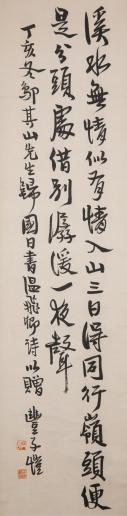 溪水無情似有情入山三日得同行嶺頭便
是分頭處借別潺湲一夜聲
丁亥冬鄔其山先生歸國日書溫飛卿詩以贈 豐子愷